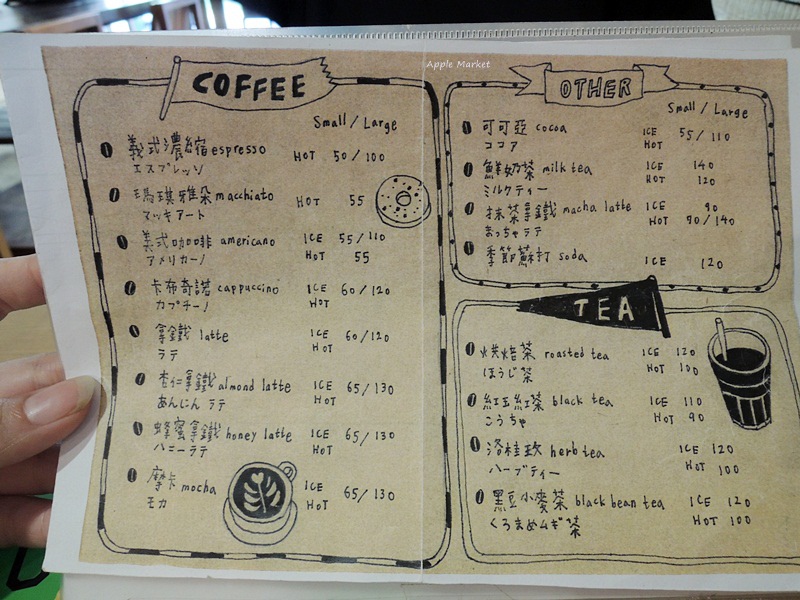 Apple Market
COFFEE
Small / Large
義式濃縮 espresso HOT 50 / 100
エスプレッソ
瑪琪雅朵 macchiato HOT 55
マッキアート
美式咖啡 americano ICE 55 / 110
アメリカーノ HOT 55
卡布奇諾 cappuccino ICE 60 / 120
カプチーノ HOT
拿鐵 latte ICE 60 / 120
ラテ HOT
杏仁拿鐵 almond latte ICE 65 / 130
あんにん ラテ HOT
蜂蜜拿鐵 honey latte ICE 65 / 130
ハニーラテ HOT
摩卡 mocha ICE 65 / 130
モカ HOT
OTHER
Small / Large
可可亞 cocoa ICE 55 / 110
ココア HOT
鮮奶茶 milk tea ICE 140
ミルクティー HOT 120
抹茶拿鐵 macha latte ICE 90
まっちゃラテ HOT 90 / 140
季節蘇打 soda ICE 120
TEA
烘焙茶 roasted tea ICE 120
ほうじ茶 HOT 100
紅玉紅茶 black tea ICE 110
こうちゃ HOT 90
洛桂玫 herb tea ICE 120
ハーブティー HOT 100
黑豆小麥茶 black bean tea ICE 120
くろまめムギ茶 HOT 100